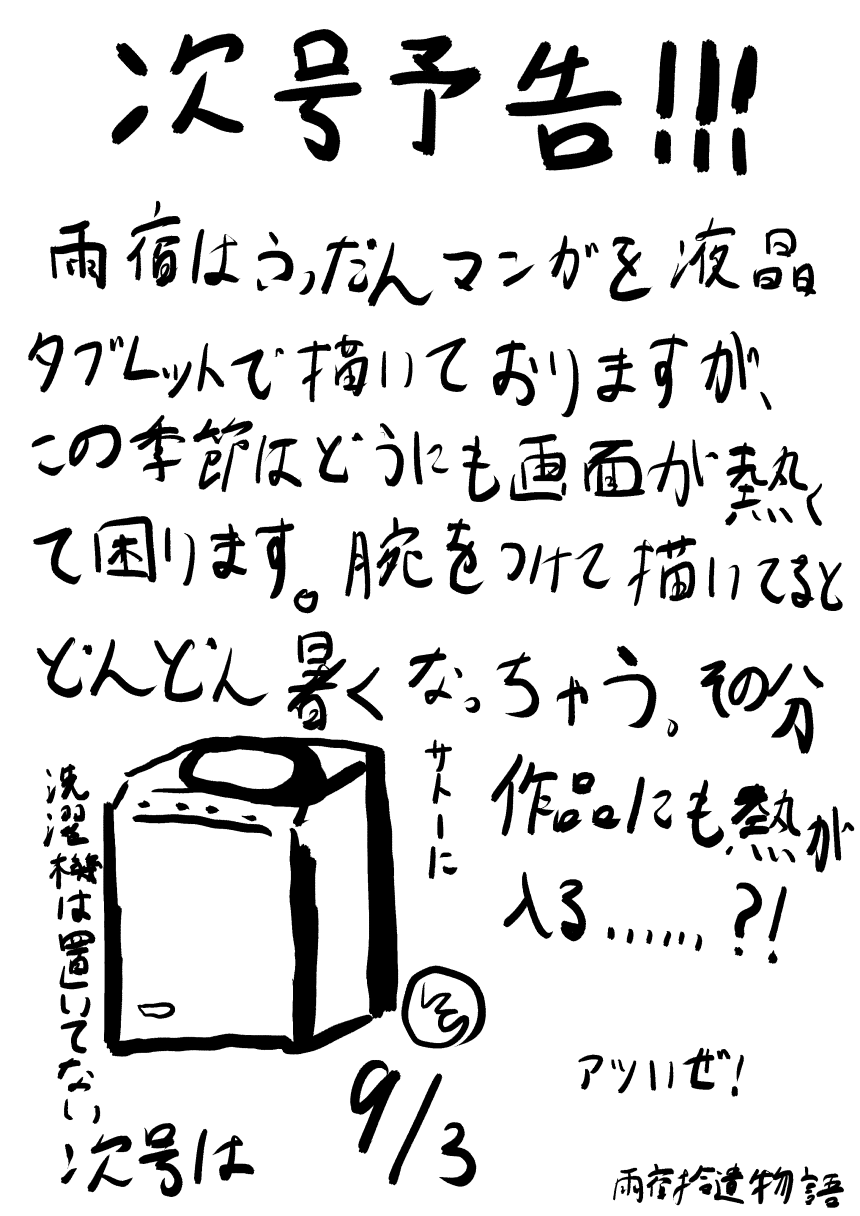 次号予告!!!
雨宿はふだんマンガを液晶
タブレットで描いておりますが、
この季節はどうにも画面が熱く
て困ります。腕をつけて描いてると
どんどん暑くなっちゃう。その分
作品にも熱が
入る……?!
サトーに
洗濯機は置いてない
アツいぜ!
次号は
9/3
雨宿拾遺物語